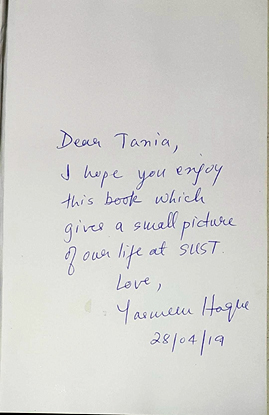 Dear Tania,
I hope you enjoy
this book which
gives a small picture
of our life at SUST.
Love,
Yasmeen Haque
28/04/19